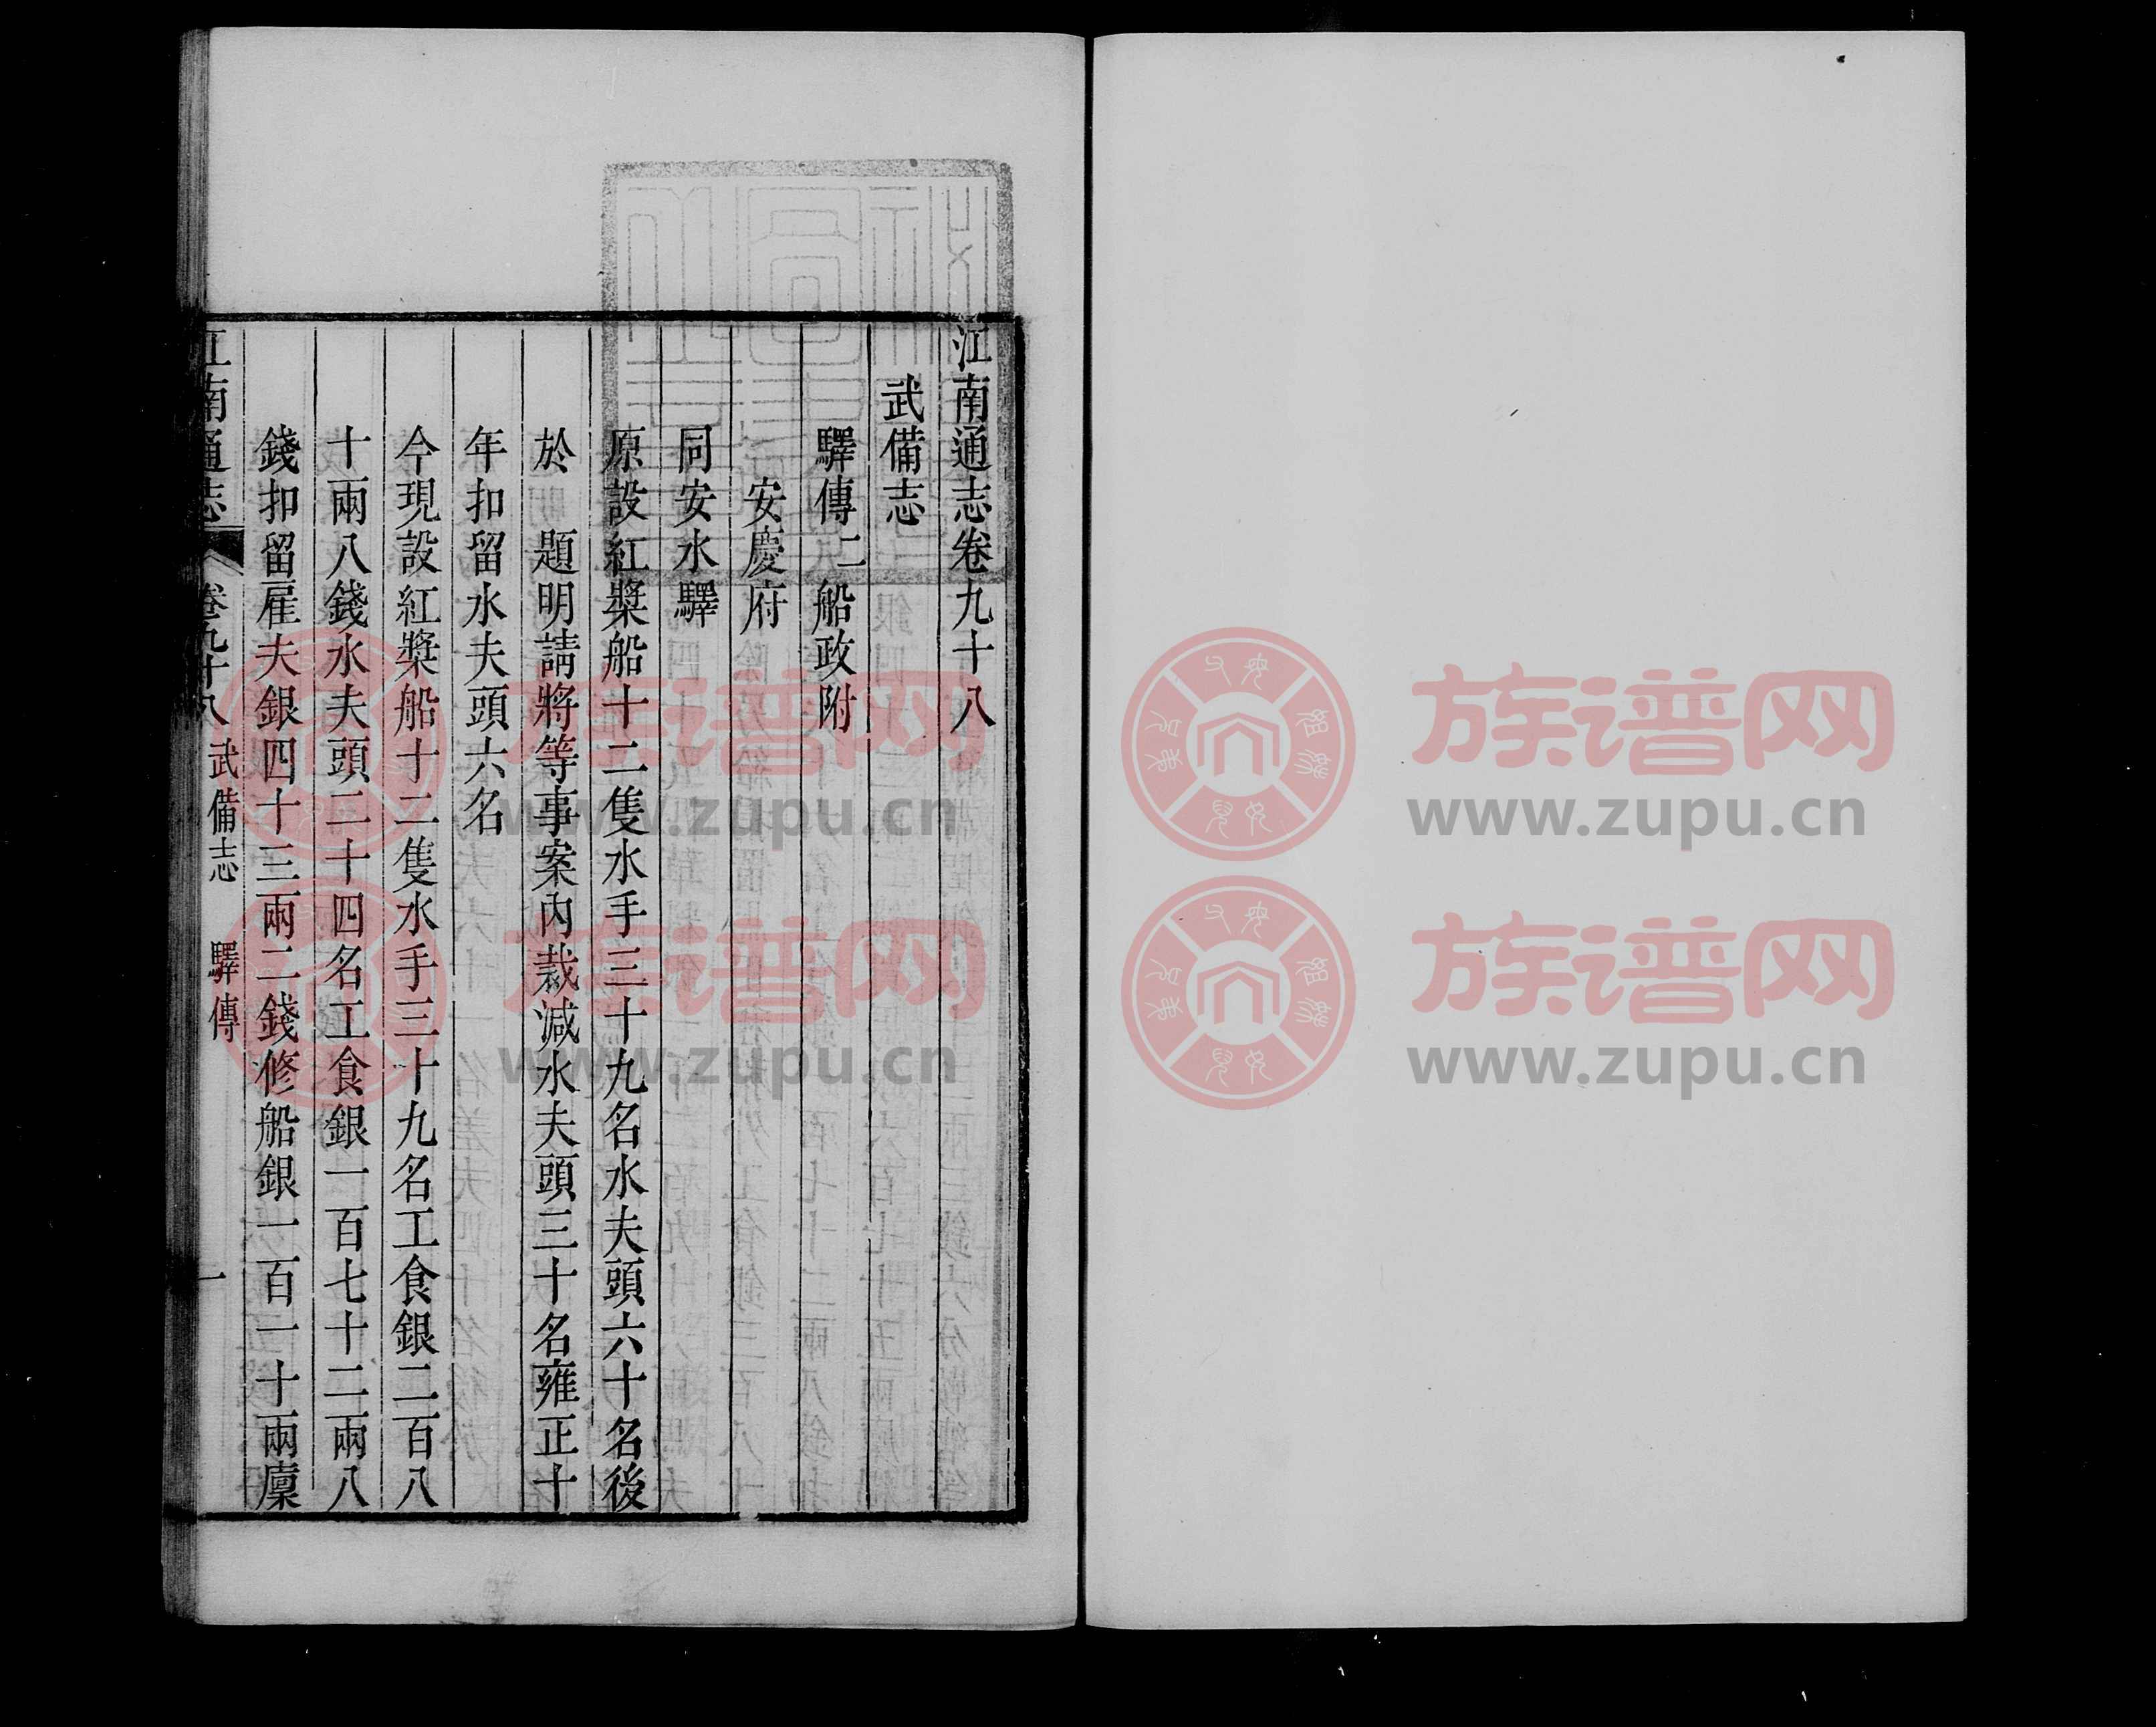 江南通志卷九十八
武備志
驛傳二船政附
安慶府
同安水驛
原設紅槳船十二隻水手三十九名水夫頭六十名後
於　題明請將等事案內裁減水夫頭三十名雍正十
年扣留水夫頭六名
今現設紅槳船十二隻水手三十九名工食銀二百八
十兩八錢水夫頭二十四名工食銀一百七十二兩八
錢扣留雇夫銀四十三兩二錢修船銀一百一十兩廩
江南通志　卷九十八　武備志　驛傳　一
族谱网
www.zupu.cn
族谱网
www.zupu.cn
族谱网
www.zupu.cn
族谱网
www.zupu.cn